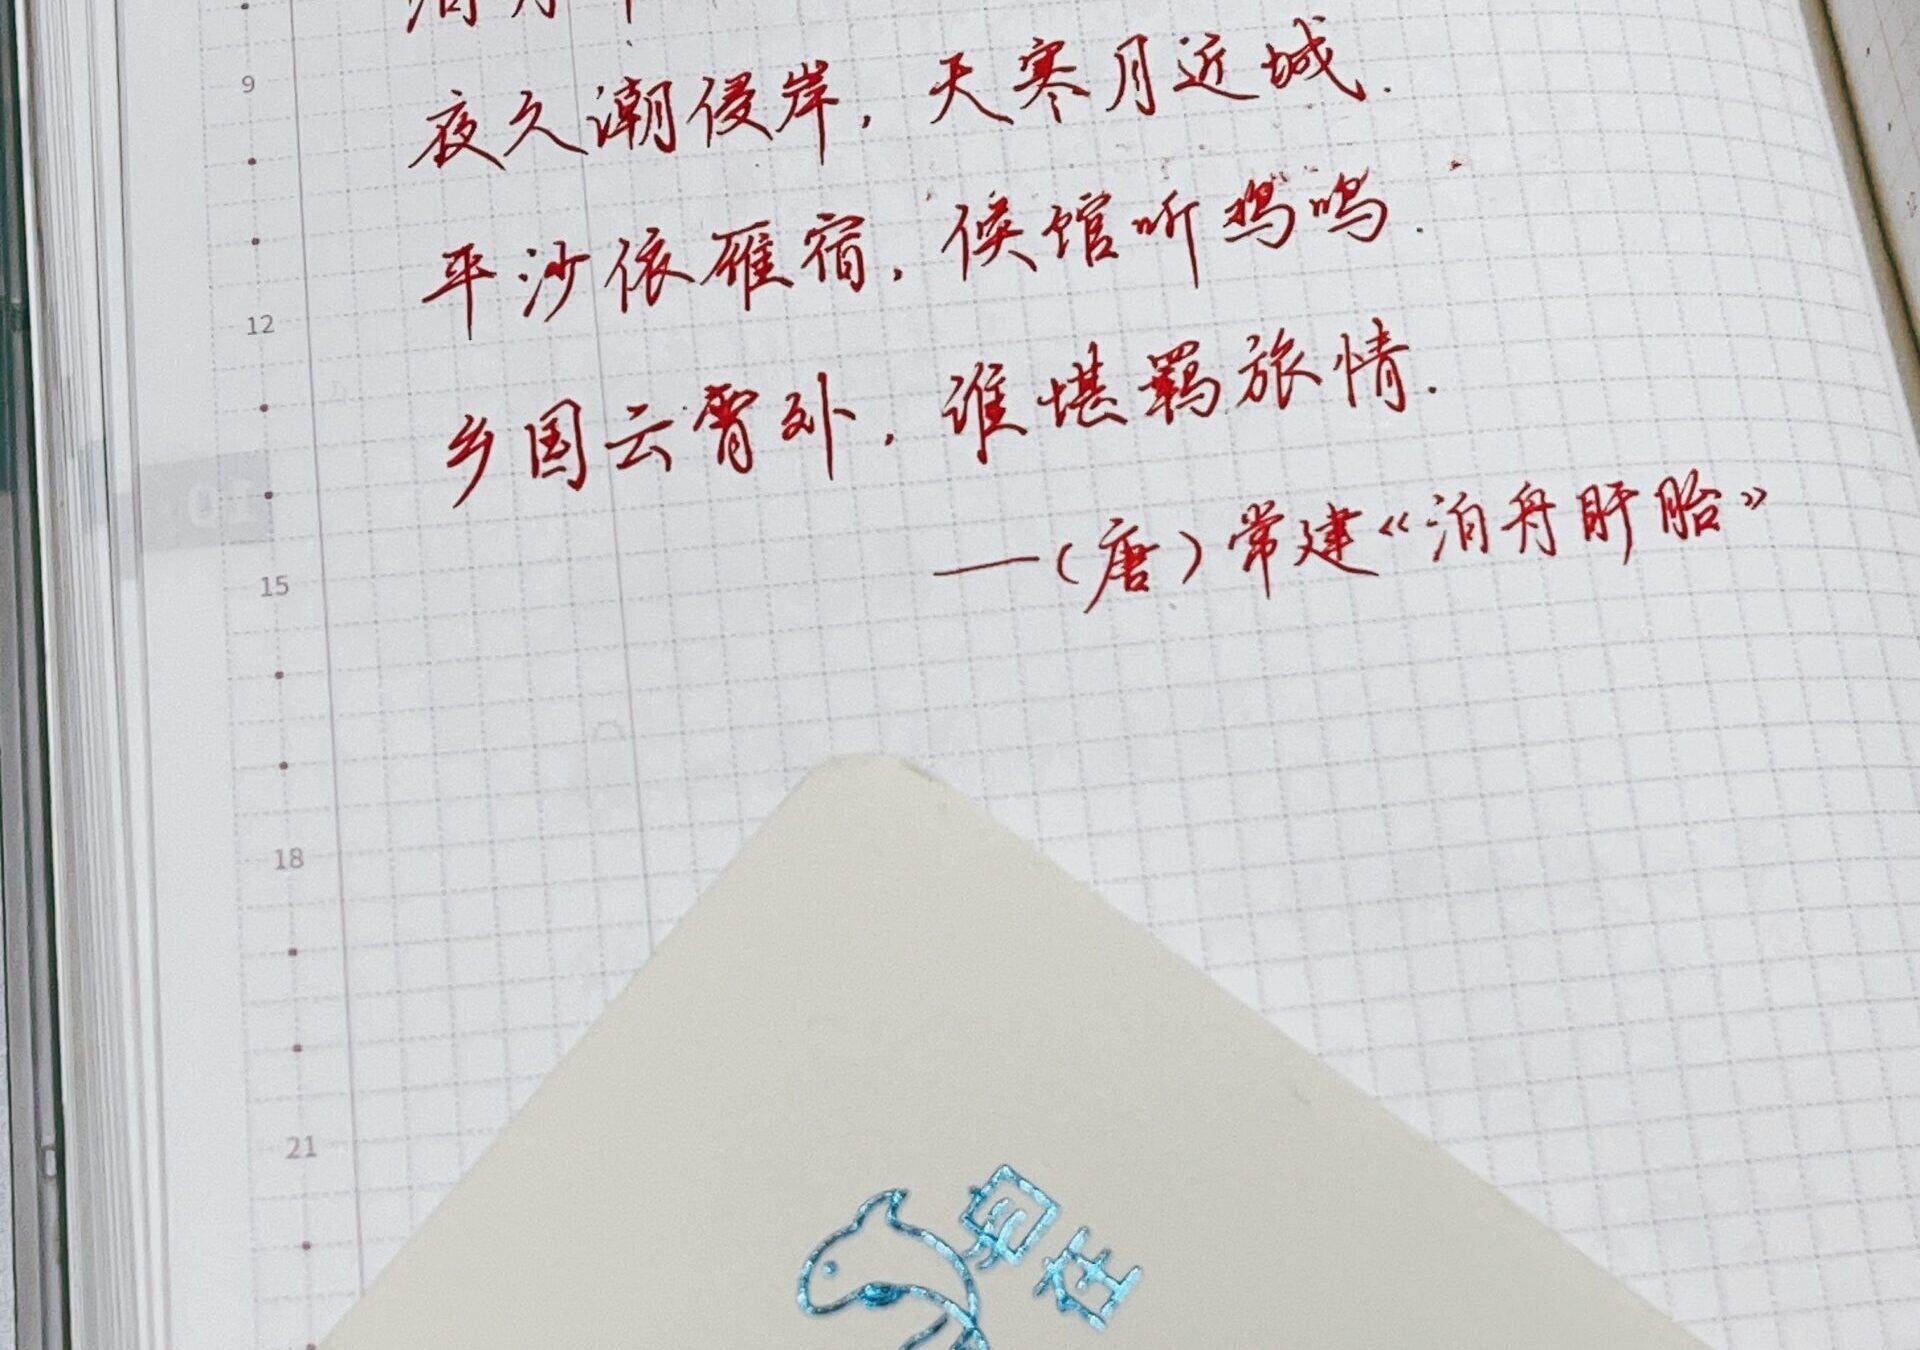 9
夜久潮侵岸,天寒月近城.
平沙依雁宿,候馆听鸡鸣.
12
乡国云霄外,谁堪羁旅情.
——(唐)常建《泊舟盱眙》
15
18
21
在